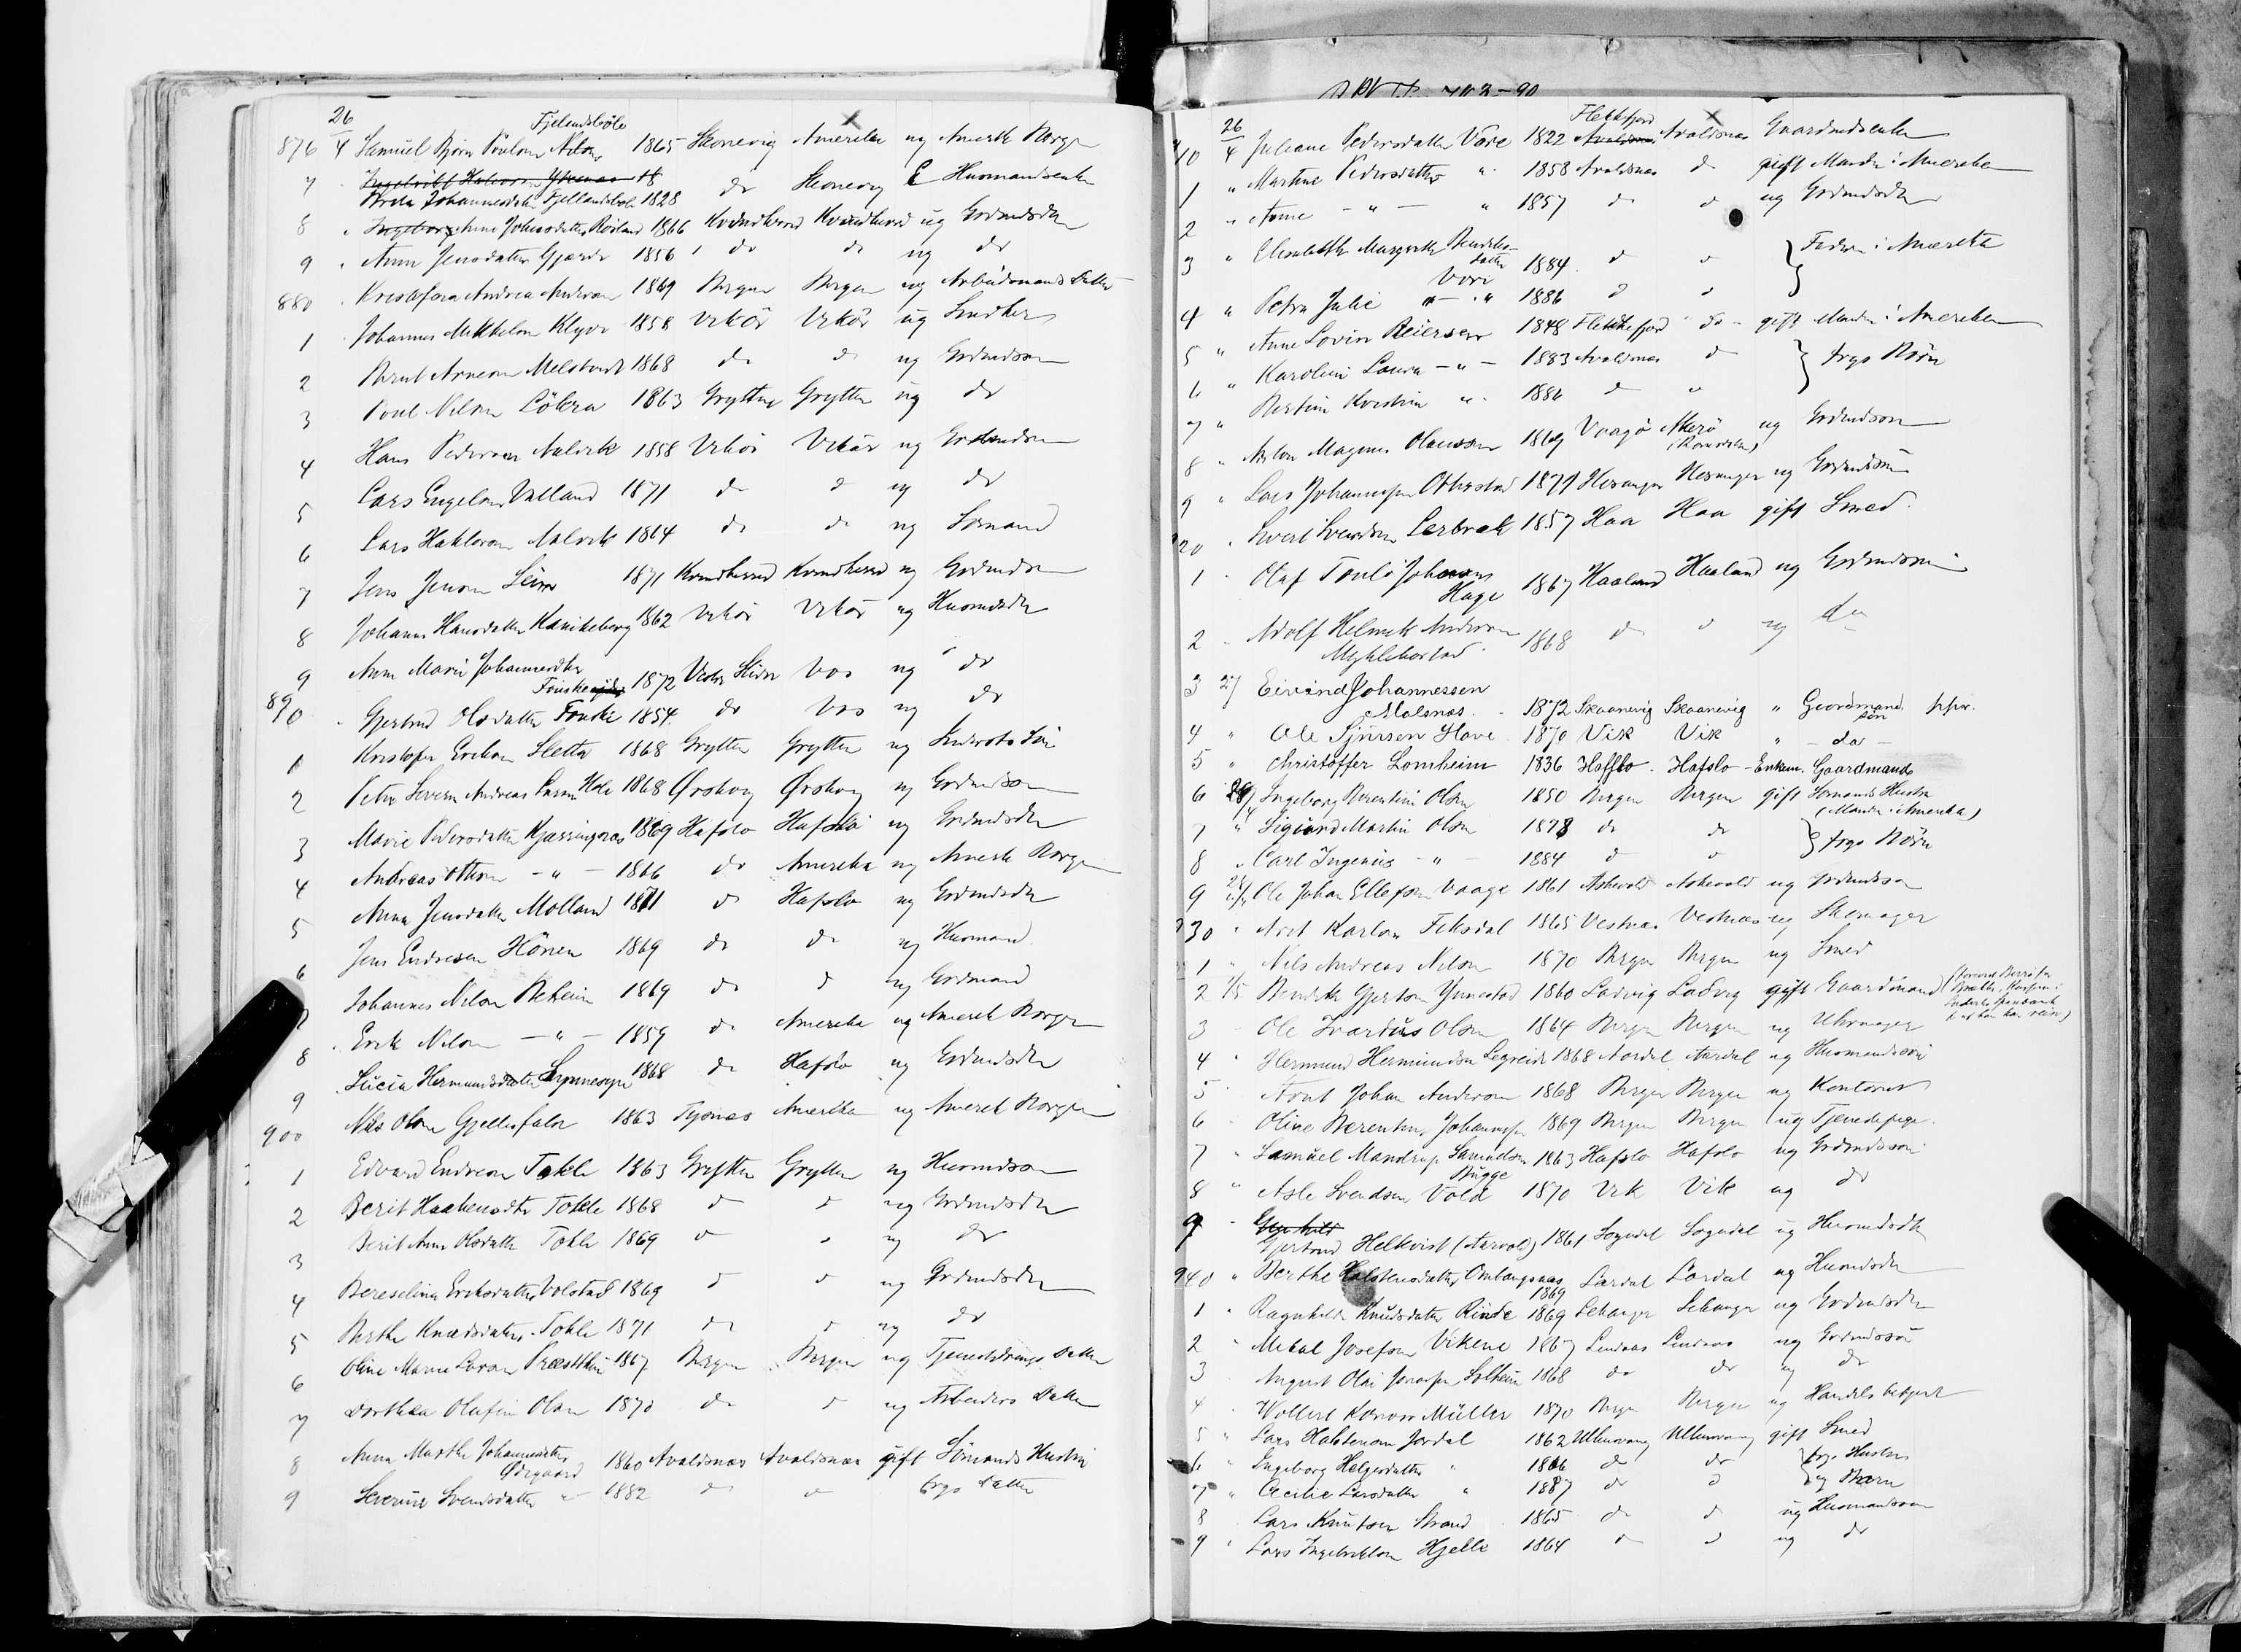 26
Fjelendsböle
876 4 Samuel Björn Poulson 1865 Skonevig Amerika ug Amerk Borger
7 Brita Johannesdatter Fjellandsböle 1828 do Skonevig E Husmandsenke
8 " Anne Johnsdatter Röiland 1866 Kvindherred Kvindherred ug Grdmdsdtr
9 " Anna Jensdatter Gjerde 1856 do do ug do
880 Kristofora Andrea Anderson 1869 Bergen Bergen ug Arbeidsmands Datter
1 Johannes Mikkelson Klyve 1858 Vikör Vikör ug Snedker
2 Bernt Arneson Melstvedt 1868 do do ug Grdmdson
3 Poul Nilson Lökra 1863 Grytten Grytten ug do
4 Hans Pederson Aalvik 1858 Vikör Vikör ug Grdmdson
5 Lars Engelson Valland 1871 do do ug do
6 Lars Haldorson Aalvik 1864 do do ug Sömand
7 Jens Jenson Seim 1871 Kvindherred Kvindherred ug Grdmdson
8 Johanna Hansdatter Kanikeberg 1862 Vikör Vikör ug Husmdsdtr
9 Anna Marie Johannesdtr
Finske 1872 Vestre Slidre Vos ug do
890 Gjertrud Olsdatter Finske 1854 do Vos ug do
1 Kristofer Erikson Sletta 1868 Grytten Grytten ug
2 Peter Severin Andreas Larsen Hole 1868 Ørskog Ørskog ug Grdmdson
3 Marie Pedersdatter Kjærringnes 1869 Hafslo Hafslo ug Grdmdsdtr
4 Andreas Ottesen - " - 1866 do Amerika ug Amerik Borger
5 Anna Jensdatter Molland 1871 do Hafslo ug Grdmdsdtr
6 Jens Endresen Hönen 1869 do do ug Husmand
7 Johannes Nilson Beheim 1869 do do ug Grdmand
8 Erik Nilson - " - 1859 do Amerika ug Amerik Borger
9 Lucia Hermundsdatter 1868 do Hafslo ug Grdmdsdtr
900 Nils Olson Gjellesfalen 1863 Tysnes Amerika ug Amerik Borger
1 Edvard Endreson Tokle 1863 Grytten Grytten ug Husmdson
2 Berit Haakensdtr Tokle 1868 do do ug Grdmdsdtr
3 Berit Anne Olsdatter Tokle 1869 do do ug do
4 Bereselina Eriksdatter Volstad 1869 do do ug Grdmdsdtr
5 Berthe Knudsdatter Tokle 1871 do do ug do
6 Oline Marie Larsen 1867 Bergen Bergen ug Datter
7 Dorthea Olufine Olsen 1870 do do ug Arbeiders Datter
8 Anna Marthe Johannesdatter
Ødegaard 1860 Avaldsnes Avaldsnes gift Sömands Hustru
9 Severine Svendsdatter " 1882 do do dsgs Datter
26
Flekkefjord
910 4 Juliane Pedersdatter Vore 1822 Avaldsnes Avaldsnes Gaardmdsenke
1 " Martine Pedersdatter " 1858 Avaldsnes do gift Manden i Amerika
2 " Anne - " - " 1857 do do ug Grdmdsdtr
3 " Elisabeth Margrethe Bendiks-
datter
Vore 1884 do do } Faderen i Amerika
4 " Petra Julie " - " 1886 do do
5 " Anne Lovise Reiersen 1848 Flekkefjord do gift Manden i Amerika
6 " Karoline Laura - " - 1883 Avaldsnes do } dsgs Börn
7 " Bertine Kristine " 1886 do "
8 " Anton Magnus Olaussen 1869 Vaagö Akerö ug Grdmdson
(Romsdalen)
9 " Lars Johannessen Othestad 1871 Hosanger Hosanger ug Grdmdson
920 Sivert Svendsen Lerbrek 1857 Haa Haa gift Smed
1 Oluf Tonli Johnsen
Hage 1867 Haaland Haaland ug Grdmdson
2 Adolf Helmik Anderson
Myklebostad 1868 do do ug do
3 27 Eivind Johannessen
Malsnæs 1872 Skaanevig Skaanevig " Gaardmand
sön
4 " Ole Sjursen Hove 1870 Vik Vik " - do -
5 " Christoffer Lomheim 1836 Hafslo Hafslo - Enkem. Gaardmands
6 28/4 Ingeborg Berentine Olsen 1850 Bergen Bergen gift Sömands Hustru
(Manden i Amerika)
7 " Sigurd Martin Olsen 1878 do do } dsgs Börn
8 " Carl Ingenius - " - 1884 do do
9 Ole Johan Ellefsen Vaage 1861 Askvold Askevold ug Grdmdson
930 " Arnt Karlsen Fiksdal 1865 Vestnæs Vestnæs ug Skomager
1 " Nils Andreas Nilson 1870 Bergen Bergen ug Smed
2 1/5 Bendik Gjertson Ynnestad 1860 Ladvig Ladvig gift Gaardmand
3 Ole Ivardus Olsen 1864 Bergen Bergen ug Uhrmager
4 " Hermund Hermundsen Legreid 1868 Aardal Aardal ug Husmandssön
5 " Arnt Johan Anderson 1868 Bergen Bergen ug Kontorist
6 " Oline Berentine Johannessen 1869 Bergen Bergen ug Tjenestepige
7 " Samuel Mandrup Samuelsen
Bugge 1863 Hafslo Hafslo ug Grdmdsson
8 " Asle Svendsen Vold 1870 Vik Vik ug do
9 " Gjertrud Helkvist (Aarvold) 1861 Sogndal Sogndal ug Husmdsdtr
940 " Berthe Halstensdatter Ombagsnæs
1869 Lærdal Lærdal ug Husmdsdtr
1 " Ragnhilde Knudsdatter Rinde 1869 Leikanger Leikanger ug Grdmdsdtr
2 " Mikal Josefsen Vikene 1867 Lindaas Lindaas ug Grdmdssön
3 August Olai Jonassen Solheim 1868 do do ug do
4 Wollert Konow Müller 1870 Bergen Bergen ug Handelsbetjent
5 " Lars Halstenson Jordal 1862 Ullensvang Ullensvang gift Smed
6 " Ingeborg Helgesdatter " 1866 do do } dsgs Hustru
7 " Cecilie Larsdatter " 1887 do do og Barn
8 Lars Knutsen Strand 1865 do do ug Husmandsson
9 " Lars Ingebrigtson Hjelle 1864 do do ug do